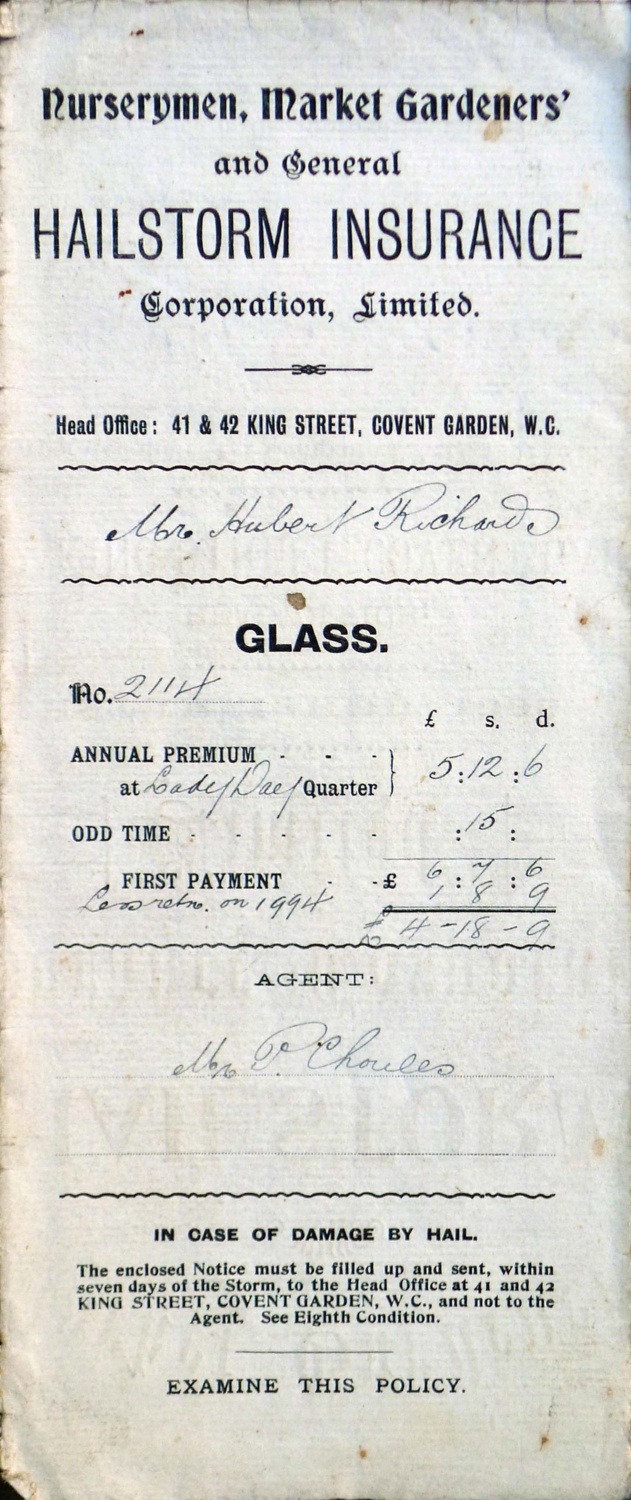 Nurserymen, Market Gardeners'
and General
HAILSTORM INSURANCE
Corporation, Limited.
Head Office: 41 & 42 KING STREET, COVENT GARDEN, W.C.
Mr. Hubert Richards
GLASS.
No. 2114
£ s. d.
ANNUAL PREMIUM - - -
at Lady Day Quarter } 5 : 12 : 6
ODD TIME - - - - - - : 15 :
FIRST PAYMENT - - £ 6 : 7 : 6
Less retn. on 1994 1 8 9
£ 4 - 18 - 9
AGENT:
Mr P. Choules
IN CASE OF DAMAGE BY HAIL.
The enclosed Notice must be filled up and sent, within
seven days of the Storm, to the Head Office at 41 and 42
KING STREET, COVENT GARDEN, W.C., and not to the
Agent. See Eighth Condition.
EXAMINE THIS POLICY.